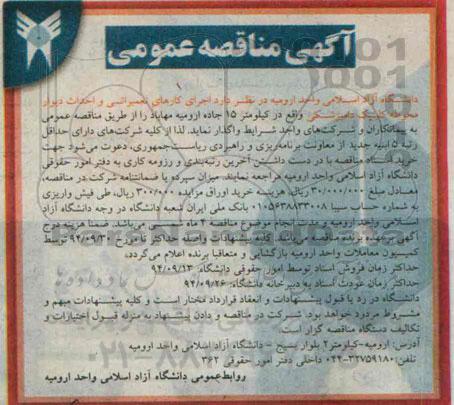 آگهی مناقصه عمومی
دانشگاه آزاد اسلامی واحد ارومیه در نظر دارد اجرای کارهای تعمیراتی و احداث دیوار
محوطه کلینیک دامپزشکی واقع در کیلومتر ۱۵ جاده ارومیه مهاباد را از طریق مناقصه عمومی
به پیمانکاران و شرکت‌های واجد شرایط واگذار نماید. لذا از کلیه شرکت‌های دارای حداقل
رتبه ۵ ابنیه جدید از معاونت برنامه‌ریزی و راهبردی ریاست‌جمهوری، دعوت می‌شود جهت
خرید اسناد مناقصه با در دست داشتن آخرین رتبه‌بندی و رزومه کاری به دفتر امور حقوقی
دانشگاه آزاد اسلامی واحد ارومیه مراجعه نمایند. میزان سپرده یا ضمانتنامه شرکت در مناقصه،
معادل مبلغ ۳۰/۰۰۰/۰۰۰ ریال، هزینه خرید اوراق مزایده ۳۰۰/۰۰۰ ریال، طی فیش واریزی
به شماره حساب سیبا ۰۱۰۵۶۳۸۸۳۳۰۰۸ بانک ملی ایران شعبه دانشگاه در وجه دانشگاه آزاد
اسلامی واحد ارومیه و مدت انجام موضوع مناقصه ۴ ماه شمسی می‌باشد. ضمنا هزینه درج
آگهی برعهده برنده مناقصه می‌باشد. کلیه پیشنهادات واصله حداکثر تا مورخ ۹۴/۰۹/۳۰ توسط
کمیسیون معاملات واحد ارومیه بازگشایی و متعاقبا برنده اعلام می‌گردد.
حداکثر زمان فروش اسناد توسط امور حقوقی دانشگاه: ۹۴/۰۹/۱۳
حداکثر زمان عودت اسناد به دبیرخانه دانشگاه: ۹۴/۰۹/۲۶
دانشگاه در رد یا قبول پیشنهادات و انعقاد قرارداد مختار است و کلیه پیشنهادات مبهم و
مشروط مردود خواهد بود. شرکت در مناقصه و دادن پیشنهاد به منزله قبول اختیارات و
تکالیف دستگاه مناقصه گزار است.
آدرس: ارومیه-کیلومتر۲ بلوار بسیج - دانشگاه آزاد اسلامی واحد ارومیه
تلفن: ۳۲۷۵۹۱۸۰-۰۴۴ داخلی دفتر امور حقوقی ۳۶۲
روابط‌عمومی دانشگاه آزاد اسلامی واحد ارومیه